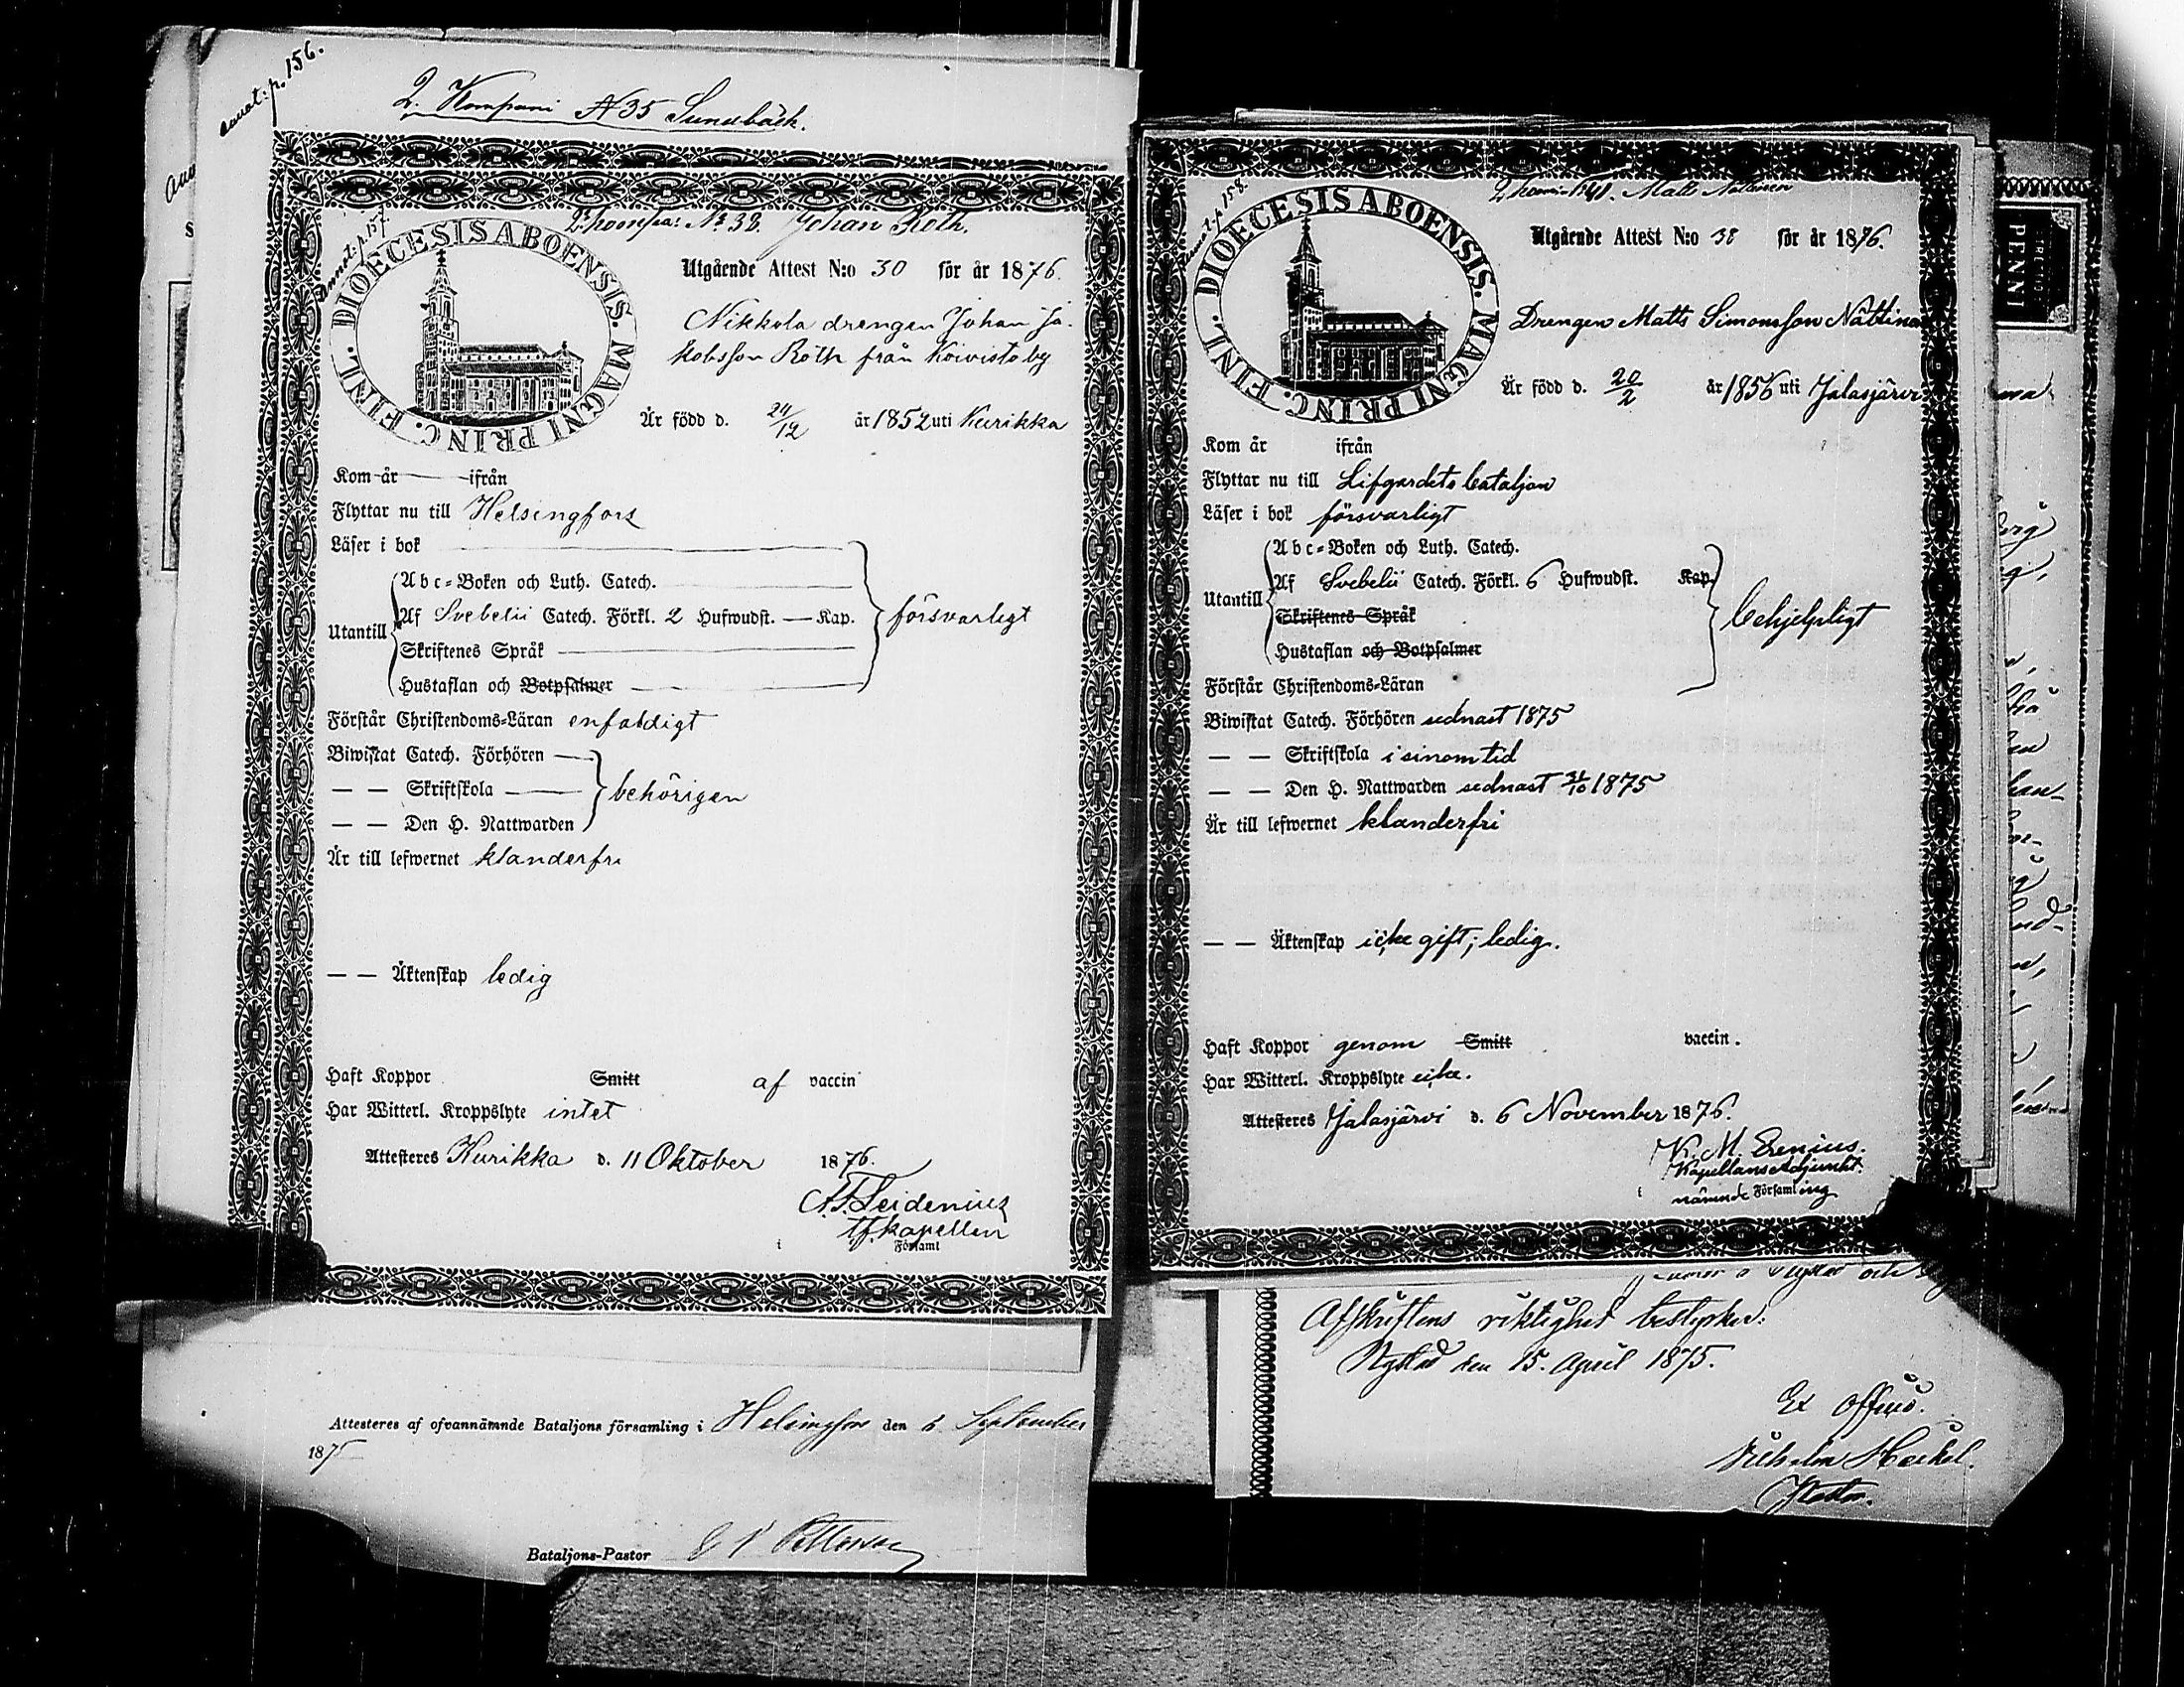 annot: p. 156.
2. Kompani N 35 Sunabäck.
annot: p. 157
2. kompa: No 32. Johan Roth.
DIOECESIS ABOENSIS. MAGNI PRINC. FINL.
Utgående Attest N:o 30 för år 1876.
Nikkola drengen Johan Ja-
kobsson Roth från Koivisto by
Är född d. 24/12 år 1852 uti Kurikka
Kom år — ifrån
Flyttar nu till Helsingfors
Läser i bok
Utantill
Abc-Boken och Luth. Catech.
Af Svebelii Catech. Förkl. 2 Hufwudst. — Kap.
Skriftenes Språk
Hustaflan och Botpsalmer
försvarligt
Förstår Christendoms-Läran enfaldigt
Biwistat Catech. Förhören —
— — Skriftskola —
— — Den H. Nattwarden
behörigen
Är till lefwernet klanderfri
— — Äktenskap ledig
Haft Koppor Smitt af vaccin
Har Witterl. Kroppslyte intet
Attesteres Kurikka d. 11 Oktober 1876.
tf. kapellan
i Församl
Attesteres af ofvannämnde Bataljons församling i Helsingfors den 6 September
1875
Bataljons-Pastor
annot: p. 158.
DIOECESIS ABOENSIS. MAGNI PRINC. FINL.
Utgående Attest N:o 38 för år 1876.
Drengen Matts Simonsson Nättinen
Är född d. 20/2 år 1856 uti Jalasjärvi
Kom år ifrån
Flyttar nu till Lifgardets bataljon
Läser i bok försvarligt
Utantill
Abc-Boken och Luth. Catech.
Af Svebelii Catech. Förkl. 6 Hufwudst. Kap.
Skriftenes Språk
Hustaflan och Botpsalmer
behjelpligt
Förstår Christendoms-Läran
Biwistat Catech. Förhören sednast 1875
— — Skriftskola i sinom tid
— — Den H. Nattwarden sednast 31/10 1875
Är till lefwernet klanderfri
— — Äktenskap icke gift; ledig.
Haft Koppor genom Smitt vaccin.
Har Witterl. Kroppslyte icke.
Attesteres Jalasjärvi d. 6 November 1876.
Kapellans Adjunkt.
i nämnde Församling
Afskriftens riktighet bestyrker:
Nystad den 15. April 1875.
Ex officio.
Wilhelm Heckel.
Pastor.
PENNI